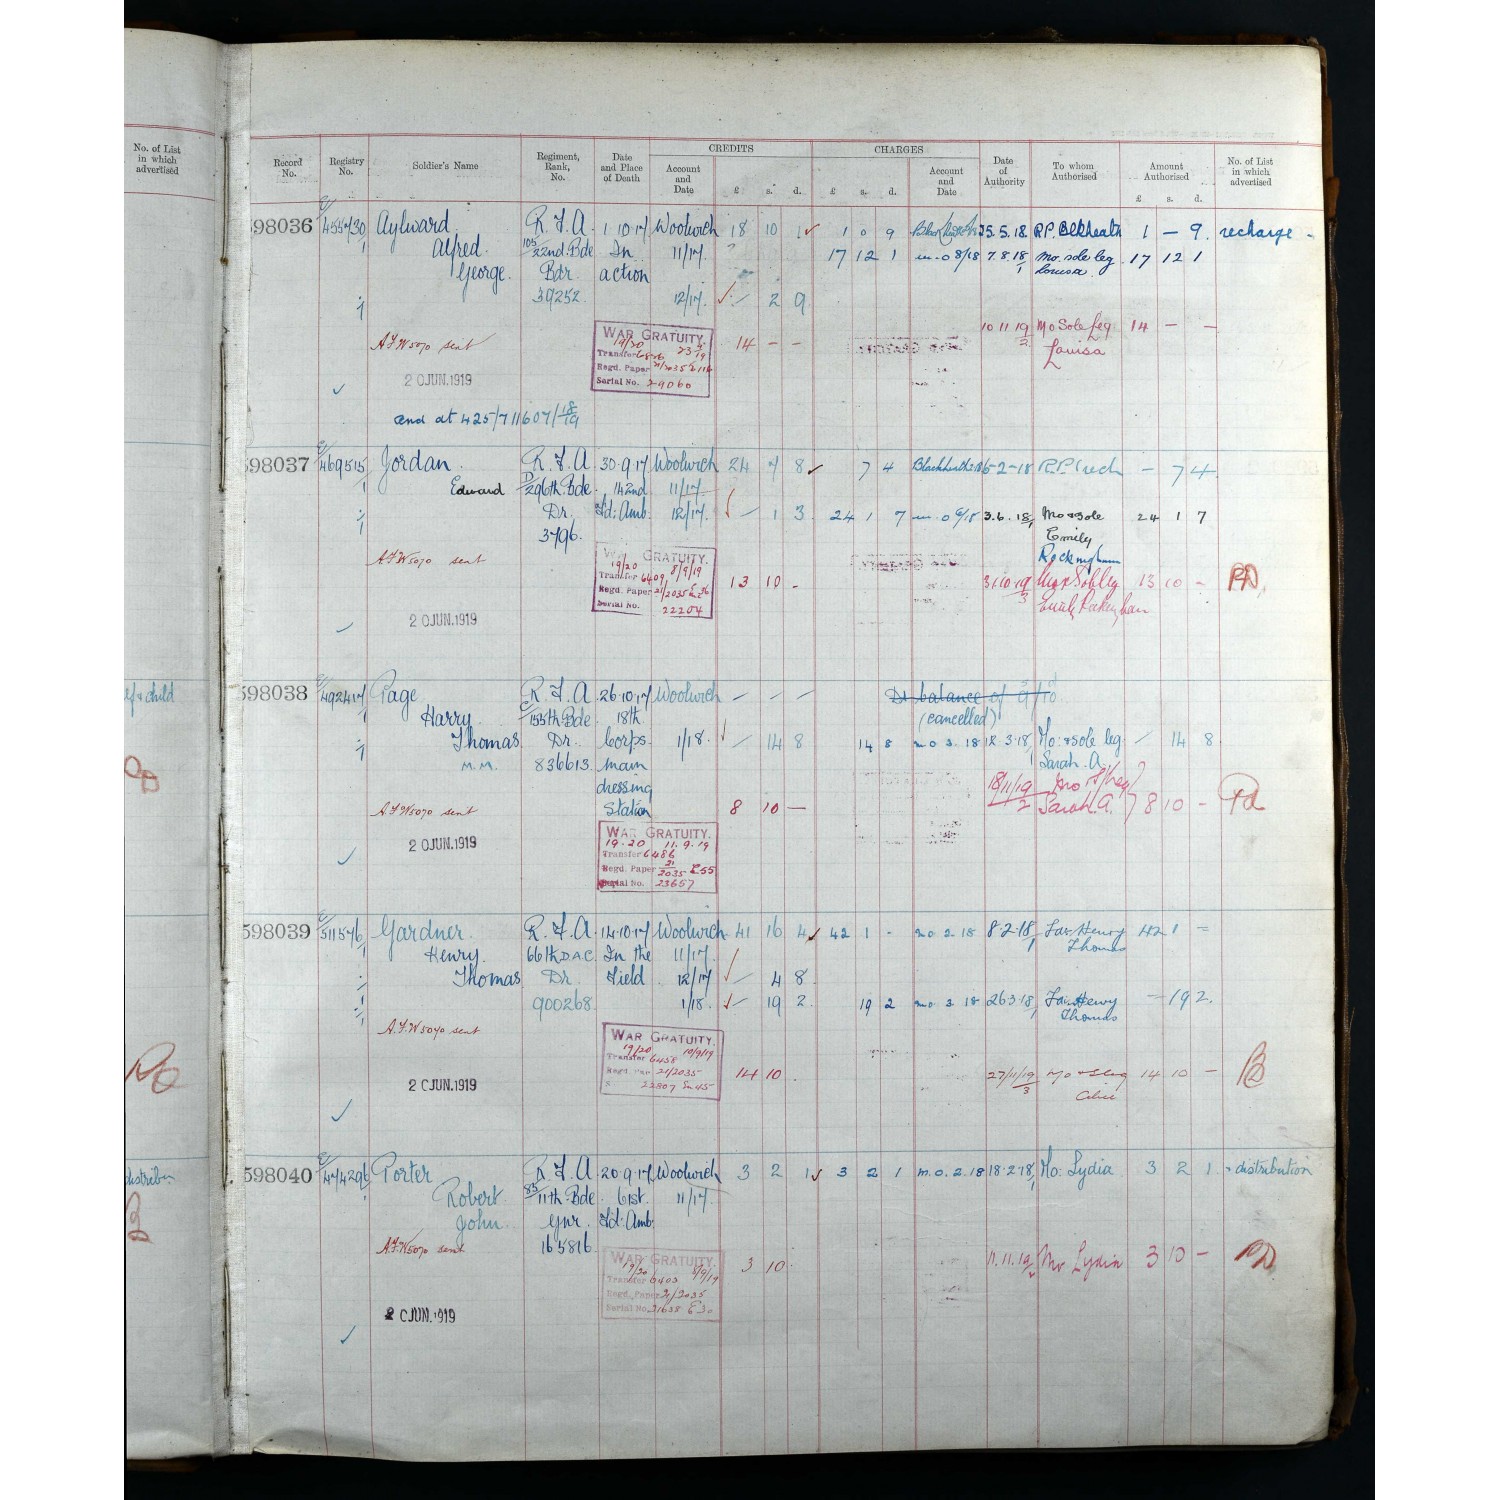 No. of List
in which
advertised
CREDITS
CHARGES
Record
No.
Registry
No.
Soldier's Name
Regiment,
Rank,
No.
Date
and Place
of Death
Account
and
Date
£ s. d.
£ s. d.
Account
and
Date
Date
of
Authority
To whom
Authorised
Amount
Authorised
£ s. d.
No. of List
in which
advertised
598036 E/455730/1 Aylward R.F.A. 1.10.17 Woolwich 18 10 1 1 0 9 25.5.18 R.P. Blkheath 1 — 9 recharge
Alfred 105/22nd Bde In 11/17 17 12 1 m.o 8/18 7.8.18/1 Mo. sole leg 17 12 1
George Bdr action Louisa
39252 12/17 — 2 9
10 11 19/2 Mo Sole Leg 14 — —
Louisa
A.F.W5070 sent
WAR GRATUITY. 14 — —
19/20
Transfer
Regd. Paper
Serial No. 29060
20 JUN. 1919
and at 425/711607/18/19
598037 E/469515/1 Jordan R.F.A. 30.9.17 Woolwich 24 7 8 7 4 Blackheath R.P. — 7 4
Edward D/296th Bde 142nd 11/17
Dr. Fd. Amb. 12/17 — 1 3 24 1 7 m.o 3.6.18/1 Mo & Sole 24 1 7
3796 Emily
Rockingham
A.F.W5070 sent
WAR GRATUITY.
19/20 8/9/19
Transfer 6409 13 10 - 31.10.19/3 13 10 —
Regd. Paper 21/2035
Serial No. 22204
20 JUN. 1919
598038 E/492417/1 Page R.F.A. 26.10.17 Woolwich — — — Dr balance of 9/10
Harry C/155th Bde 18th (cancelled)
Thomas Dr. Corps 1/18 — 14 8 14 8 m o 3.18 12.3.18/1 Mo: & sole leg — 14 8
M.M. 836613 main Sarah A.
dressing
A.F.W5070 sent Station 8 10 — 18/11/19/2 Sarah A. 8 10 —
WAR GRATUITY.
19.20 11.9.19
Transfer 6486
Regd. Paper 21/2035 E55
Serial No. 23657
20 JUN. 1919
598039 E/511576/1 Gardner R.F.A. 14.10.17 Woolwich 41 16 4 42 1 - m o 2.18 8.2.18/1 Fa: Henry 42 1 —
Henry 66th D.A.C. In the 11/17 Thomas
Thomas Dr. Field 12/17 — 4 8
900268 1/18 — 19 2 19 2 m o 3 18 26.3.18/1 Fa: Henry — 19 2
Thomas
A.F.W5070 sent
WAR GRATUITY.
19/20 10/9/19
Transfer 6458
21/2035 14 10 27/11/19/3 14 10 —
22807 En 45
20 JUN. 1919
598040 E/474296/1 Porter R.F.A. 20.9.17 Woolwich 3 2 1 3 2 1 m.o. 2.18 18.2.18/1 Mo: Lydia 3 2 1 distribution
Robert 85/11th Bde 61st 11/17
John Gnr. Fd. Amb.
A.F.W5070 sent 165816
WAR GRATUITY. 3 10 11.11.19/2 Mo Lydia 3 10 —
19/20 8/9/19
Transfer 6403
Regd. Paper 21/2035
Serial No. 21638 E30
20 JUN. 1919